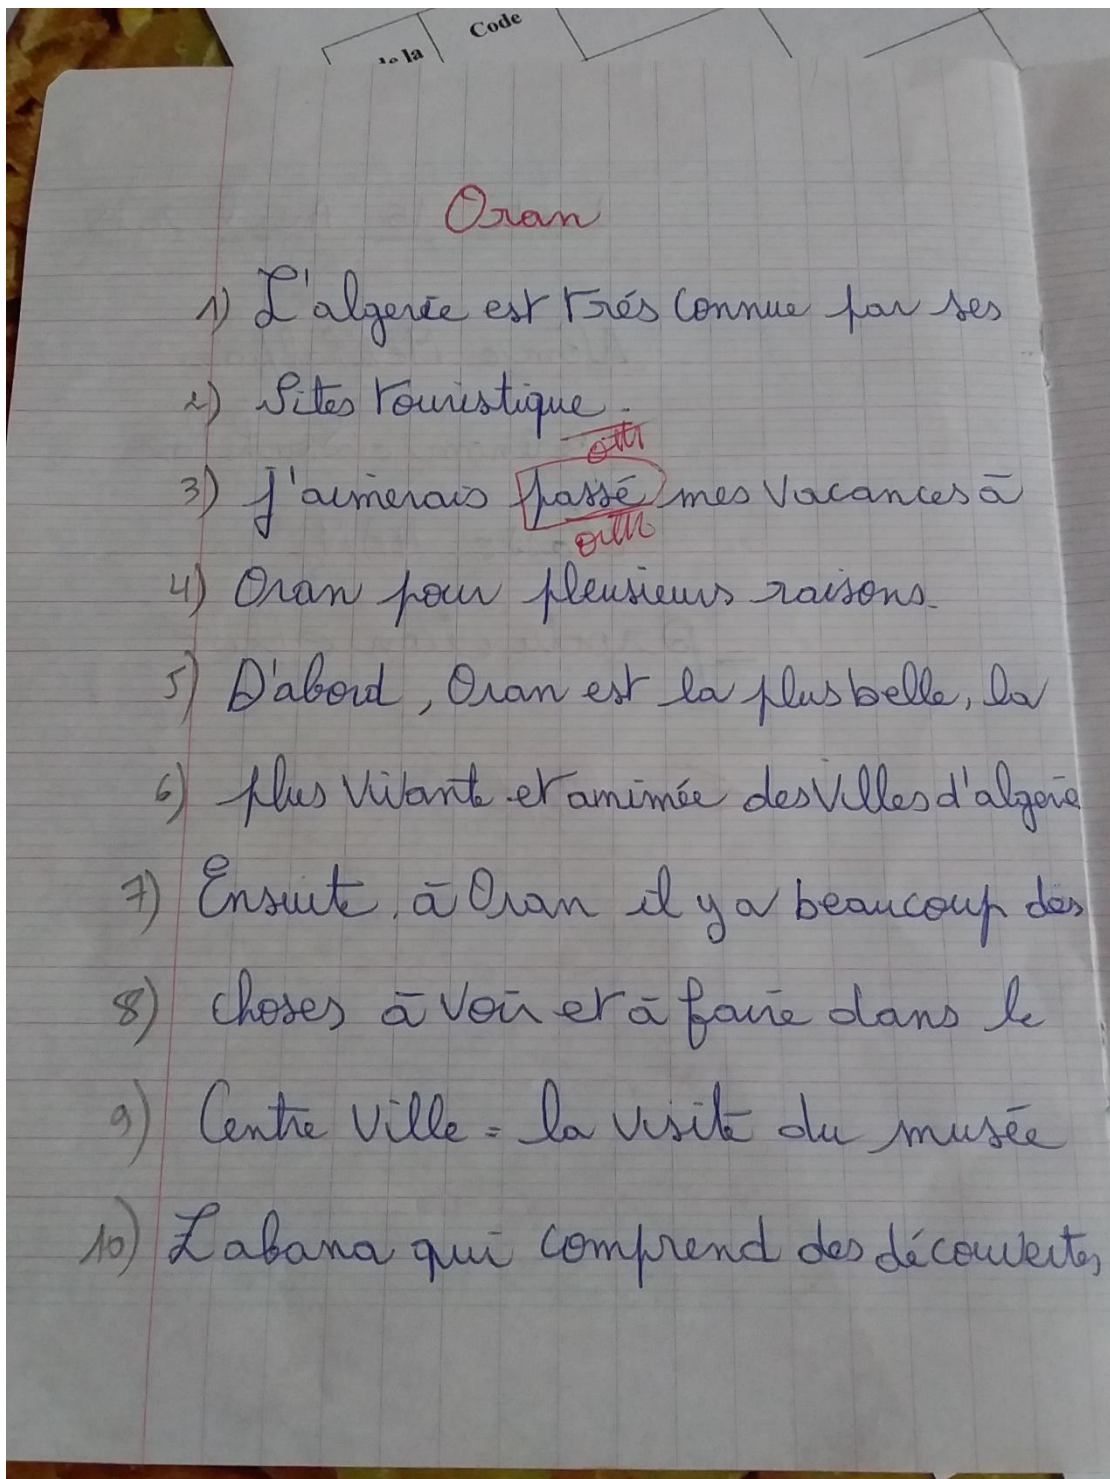 Code
de la
Oran
1) L'algerie est trés connue par ses
2) Sites touristique.
orth
3) J'aimerais passé mes vacances à
orth
4) Oran pour pleusieurs raisons.
5) D'abord, Oran est la plus belle, la
6) plus vivante et animée des villes d'algerie
7) Ensuite, à Oran il y a beaucoup des
8) choses à voir et à faire dans le
9) Centre ville = la visite du musée
10) Zabana qui comprend des découvertes